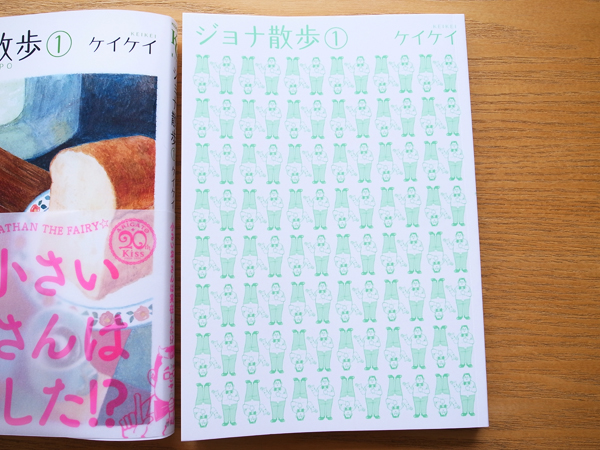 散歩①
ケイケイ
KEIKEI
PO
ATHAN THE FAIRY☆
20th
Kiss
小さい
さんは
した!?
ジョナ散歩①
ケイケイ
KEIKEI